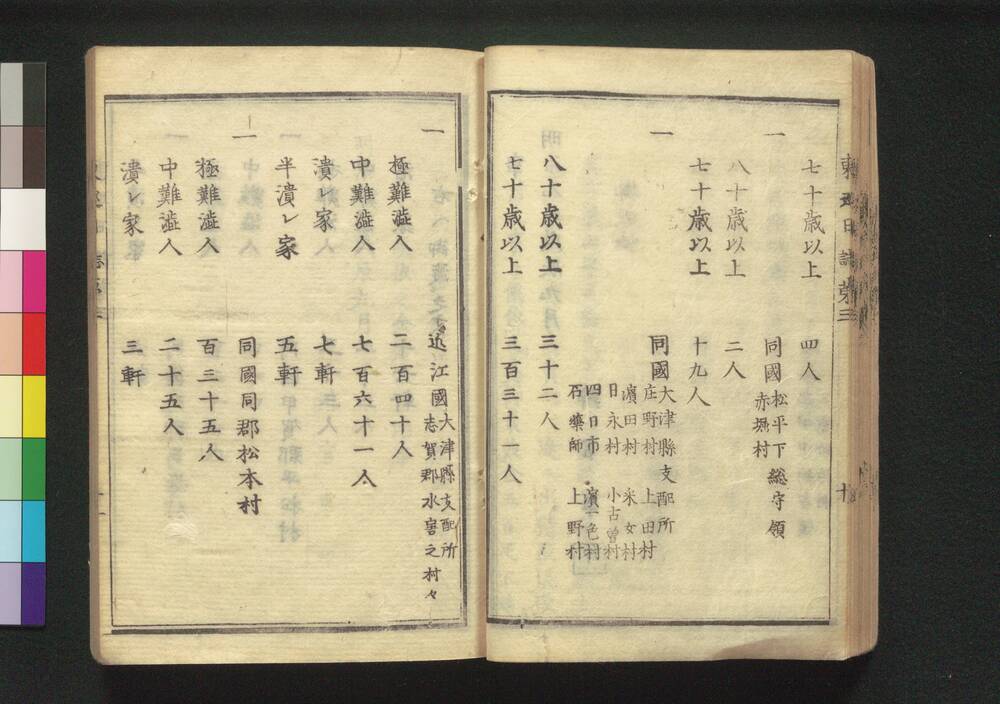 東巡日誌第三
十
七十歳以上 四人
一 同國松平下總守領
赤堀村
八十歳以上 二人
七十歳以上 十九人
一 同國大津縣支配所
庄野村 上田村
濱田村 釆女村
日永村 小古曽村
四日市 濱一色村
石藥師 上野村
八十歳以上 三十二人
七十歳以上 三百三十一人
一 近江國大津縣支配所
志賀郡水害之村々
極難澁人 二百四十人
中難澁人 七百六十一人
潰レ家 七軒
半潰レ家 五軒
一 同國同郡松本村
極難澁人 百三十五人
中難澁人 二十五人
潰レ家 三軒